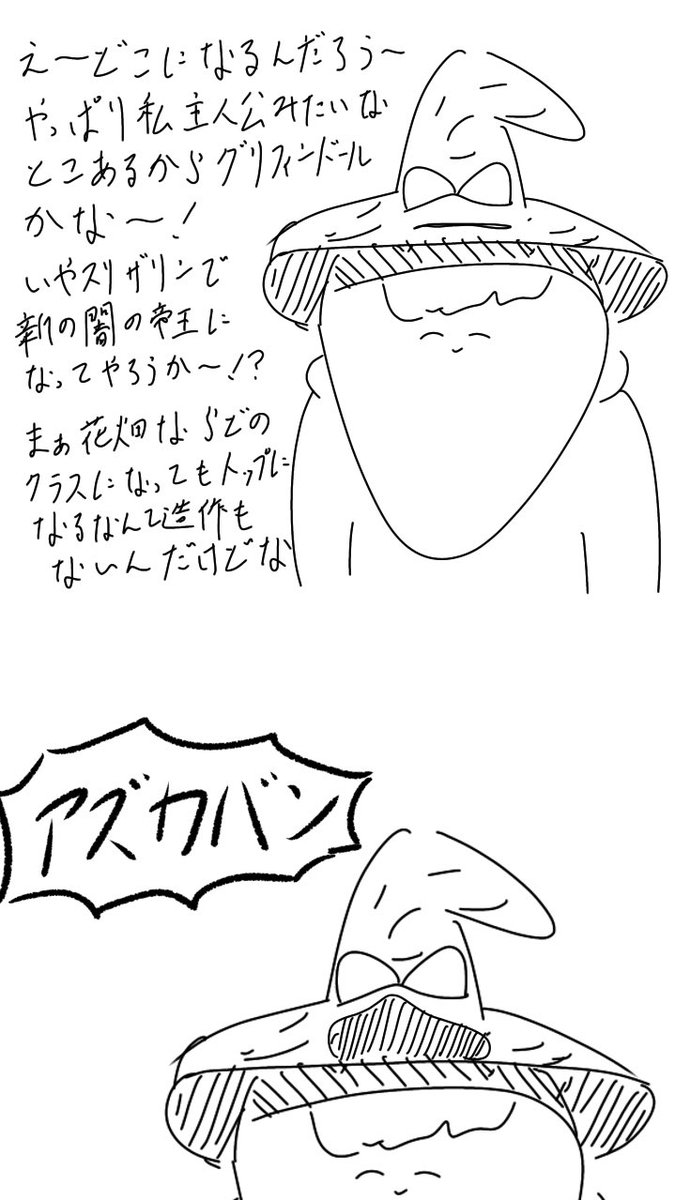 え〜どこになるんだろう〜
やっぱり私主人公みたいな
とこあるからグリフィンドール
かな〜!
いやスリザリンで
新の闇の帝王に
なってやろうか〜!?
まぁ花畑ならどの
クラスになってもトップに
なるなんて造作も
ないんだけどな
アズカバン